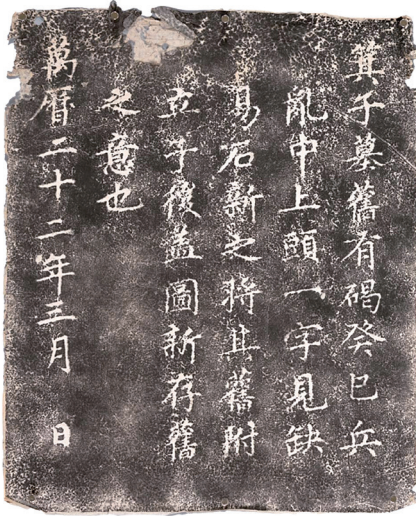 箕子墓舊有碣癸巳兵
亂中上頭一字見缺
易石新之將其舊附
立于後蓋圖新存舊
之意也
萬曆二十二年三月 日